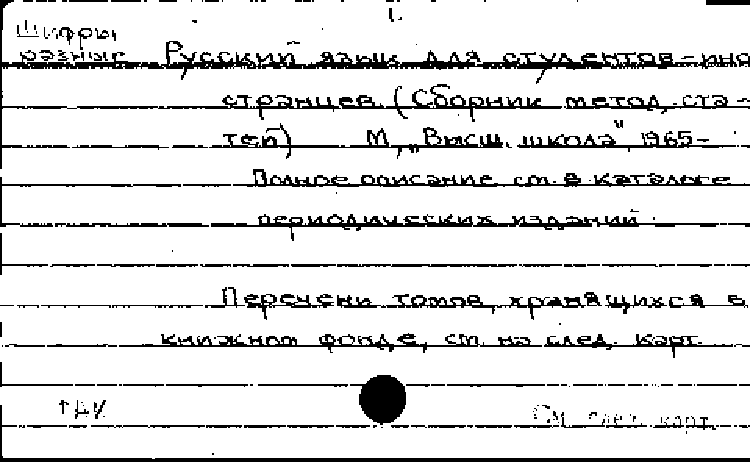 1.
Шифры
разные Русский язык для студентов-ино
странцев. (Сборник метод. ста-
тей) М., „Высш. школа", 1965-
Полное описание см. в каталоге
периодических изданий.
Перечень томов, хранящихся в
книжном фонде, см. на след. карт.
См. след. карт.